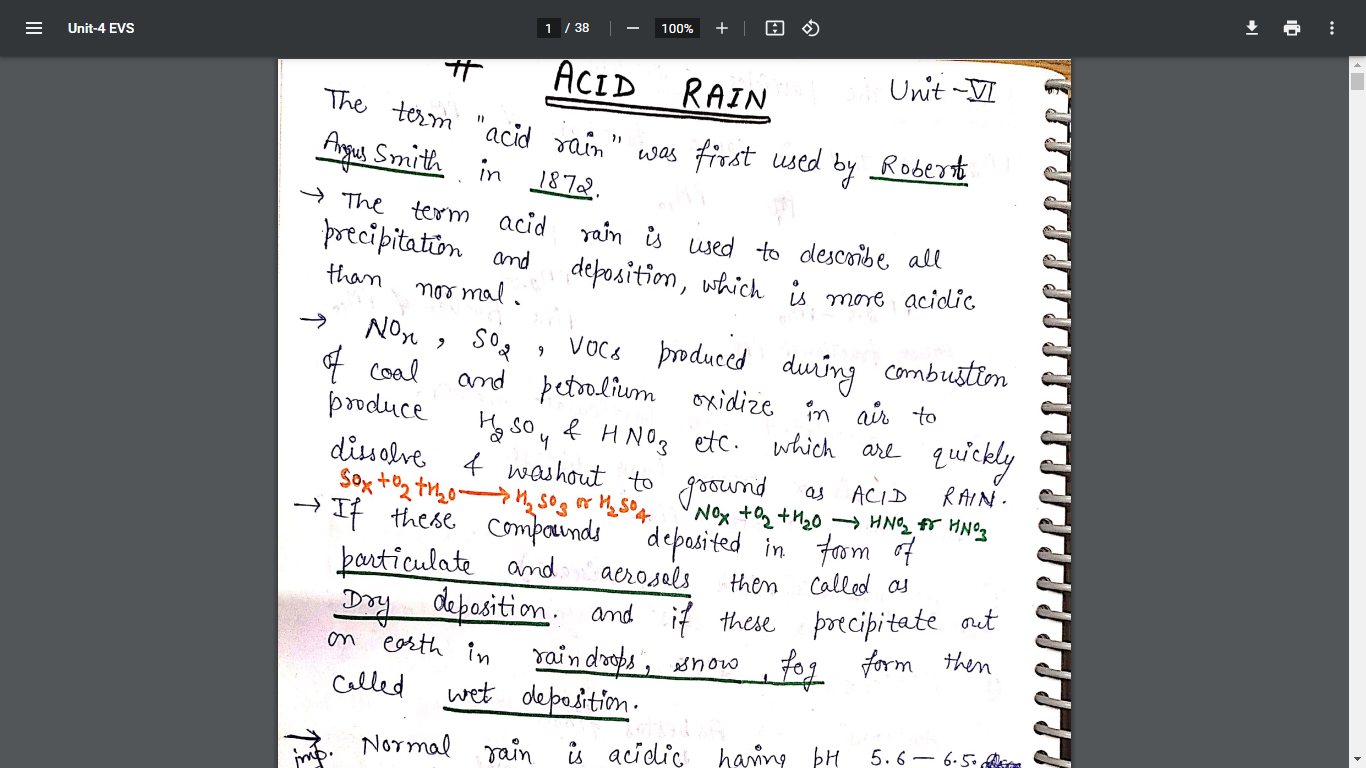 Unit-4 EVS
1 / 38
100%
# ACID RAIN
Unit - VI
The term "acid rain" was first used by Robert
Angus Smith in 1872.
→ The term acid rain is used to describe all
precipitation and deposition, which is more acidic
than normal.
→ NOx, SO2, VOCs produced during combustion
of coal and petrolium oxidize in air to
produce H2SO4 & HNO3 etc. which are quickly
dissolve & washout to ground as ACID RAIN.
SOx + O2 + H2O → H2SO3 or H2SO4
NOx + O2 + H2O → HNO2 or HNO3
→ If these compounds deposited in form of
particulate and aerosols then called as
Dry deposition. and if these precipitate out
on earth in raindrops, snow, fog form then
called wet deposition.
→ imp. Normal rain is acidic having pH 5.6 – 6.5.